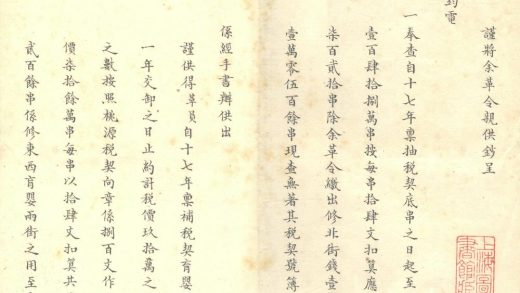 謹將余革令親供鈔呈
電
一奉查自十七年稟抽税契底串之日起至
壹百肆拾捌萬串按每串拾肆文扣算應
柒百貳拾串除余革令繳出修北街錢壹
壹萬零伍百餘串現查無著其税契號簿
係經手書辦供出
謹供得革員自十七年稟補税契育嬰
一年交卸之日止約計税價玖拾萬之
之數按照桃源税契向章係捌百文作
價柒拾餘萬串每串以拾肆文扣算共
貳百餘串係修東西育嬰兩街之用至
上海圖
書館藏